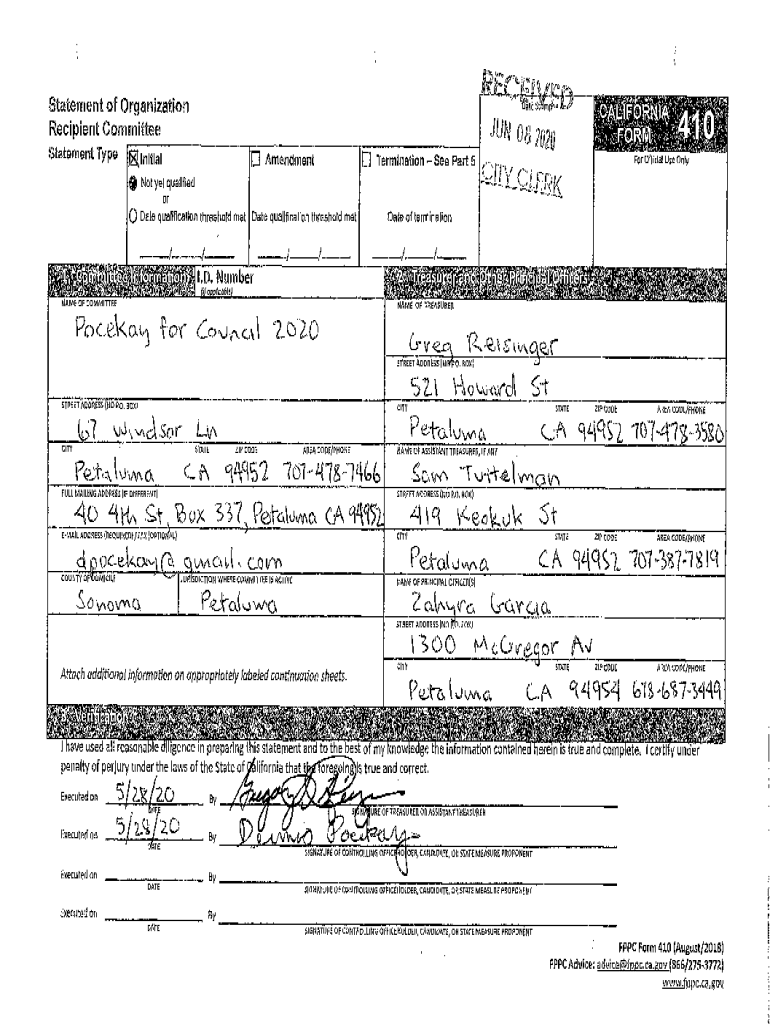 RECEIVED
Statement of Organization
Recipient Committee
Date Stamp
JUN 08 2020
CITY CLERK
CALIFORNIA
FORM 410
For Official Use Only
Statement Type
Initial
Amendment
Termination – See Part 5
Not yet qualified
or
Date qualification threshold met
Date qualification threshold met
Date of termination
1. Committee Information
I.D. Number
(if applicable)
2. Treasurer and Other Principal Officers
NAME OF COMMITTEE
Pocekay for Council 2020
NAME OF TREASURER
Greg Reisinger
STREET ADDRESS (NO P.O. BOX)
521 Howard St
STREET ADDRESS (NO P.O. BOX)
67 Windsor Ln
CITY STATE ZIP CODE AREA CODE/PHONE
Petaluma CA 94952 707-478-3580
CITY STATE ZIP CODE AREA CODE/PHONE
Petaluma CA 94952 707-478-7466
NAME OF ASSISTANT TREASURER, IF ANY
Sam Tuttelman
FULL MAILING ADDRESS (IF DIFFERENT)
40 4th St, Box 337, Petaluma CA 94952
STREET ADDRESS (NO P.O. BOX)
419 Keokuk St
E-MAIL ADDRESS (REQUIRED) / FAX (OPTIONAL)
dpocekay@gmail.com
CITY STATE ZIP CODE AREA CODE/PHONE
Petaluma CA 94952 707-387-7819
COUNTY OF DOMICILE
JURISDICTION WHERE COMMITTEE IS ACTIVE
Sonoma
Petaluma
NAME OF PRINCIPAL OFFICER(S)
Zahyra Garcia
STREET ADDRESS (NO P.O. BOX)
1300 McGregor Av
Attach additional information on appropriately labeled continuation sheets.
CITY STATE ZIP CODE AREA CODE/PHONE
Petaluma CA 94954 678-687-3449
3. Verification
I have used all reasonable diligence in preparing this statement and to the best of my knowledge the information contained herein is true and complete. I certify under
penalty of perjury under the laws of the State of California that the foregoing is true and correct.
Executed on 5/28/20 By
DATE
SIGNATURE OF TREASURER OR ASSISTANT TREASURER
Executed on 5/28/20 By Dennis Pocekay
DATE
SIGNATURE OF CONTROLLING OFFICEHOLDER, CANDIDATE, OR STATE MEASURE PROPONENT
Executed on By
DATE
SIGNATURE OF CONTROLLING OFFICEHOLDER, CANDIDATE, OR STATE MEASURE PROPONENT
Executed on By
DATE
SIGNATURE OF CONTROLLING OFFICEHOLDER, CANDIDATE, OR STATE MEASURE PROPONENT
FPPC Form 410 (August/2018)
FPPC Advice: advice@fppc.ca.gov (866/275-3772)
www.fppc.ca.gov